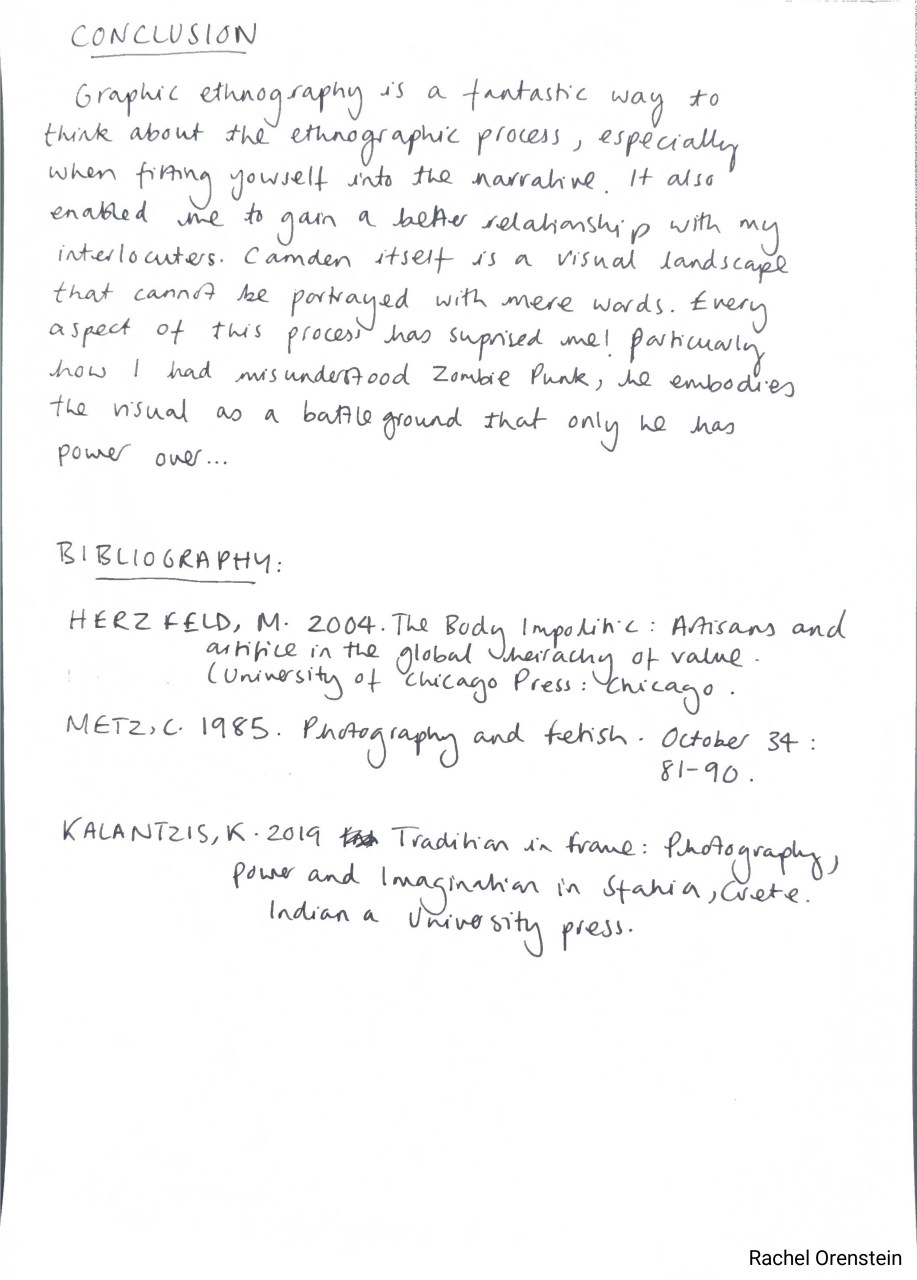 CONCLUSION
Graphic ethnography is a fantastic way to
think about the ethnographic process, especially
when fitting yourself into the narrative. It also
enabled me to gain a better relationship with my
interlocuters. Camden itself is a visual landscape
that cannot be portrayed with mere words. Every
aspect of this process has suprised me! Particularly
how I had misunderstood Zombie Punk, he embodies
the visual as a battle ground that only he has
power over...
BIBLIOGRAPHY:
HERZFELD, M. 2004. The Body Impolitic: Artisans and
artifice in the global heirachy of value.
(University of Chicago Press: Chicago.
METZ, C. 1985. Photography and fetish. October 34:
81-90.
KALANTZIS, K. 2019 Tradition in frame: Photography,
Power and Imagination in Sfakia, Crete.
Indiana University press.
Rachel Orenstein